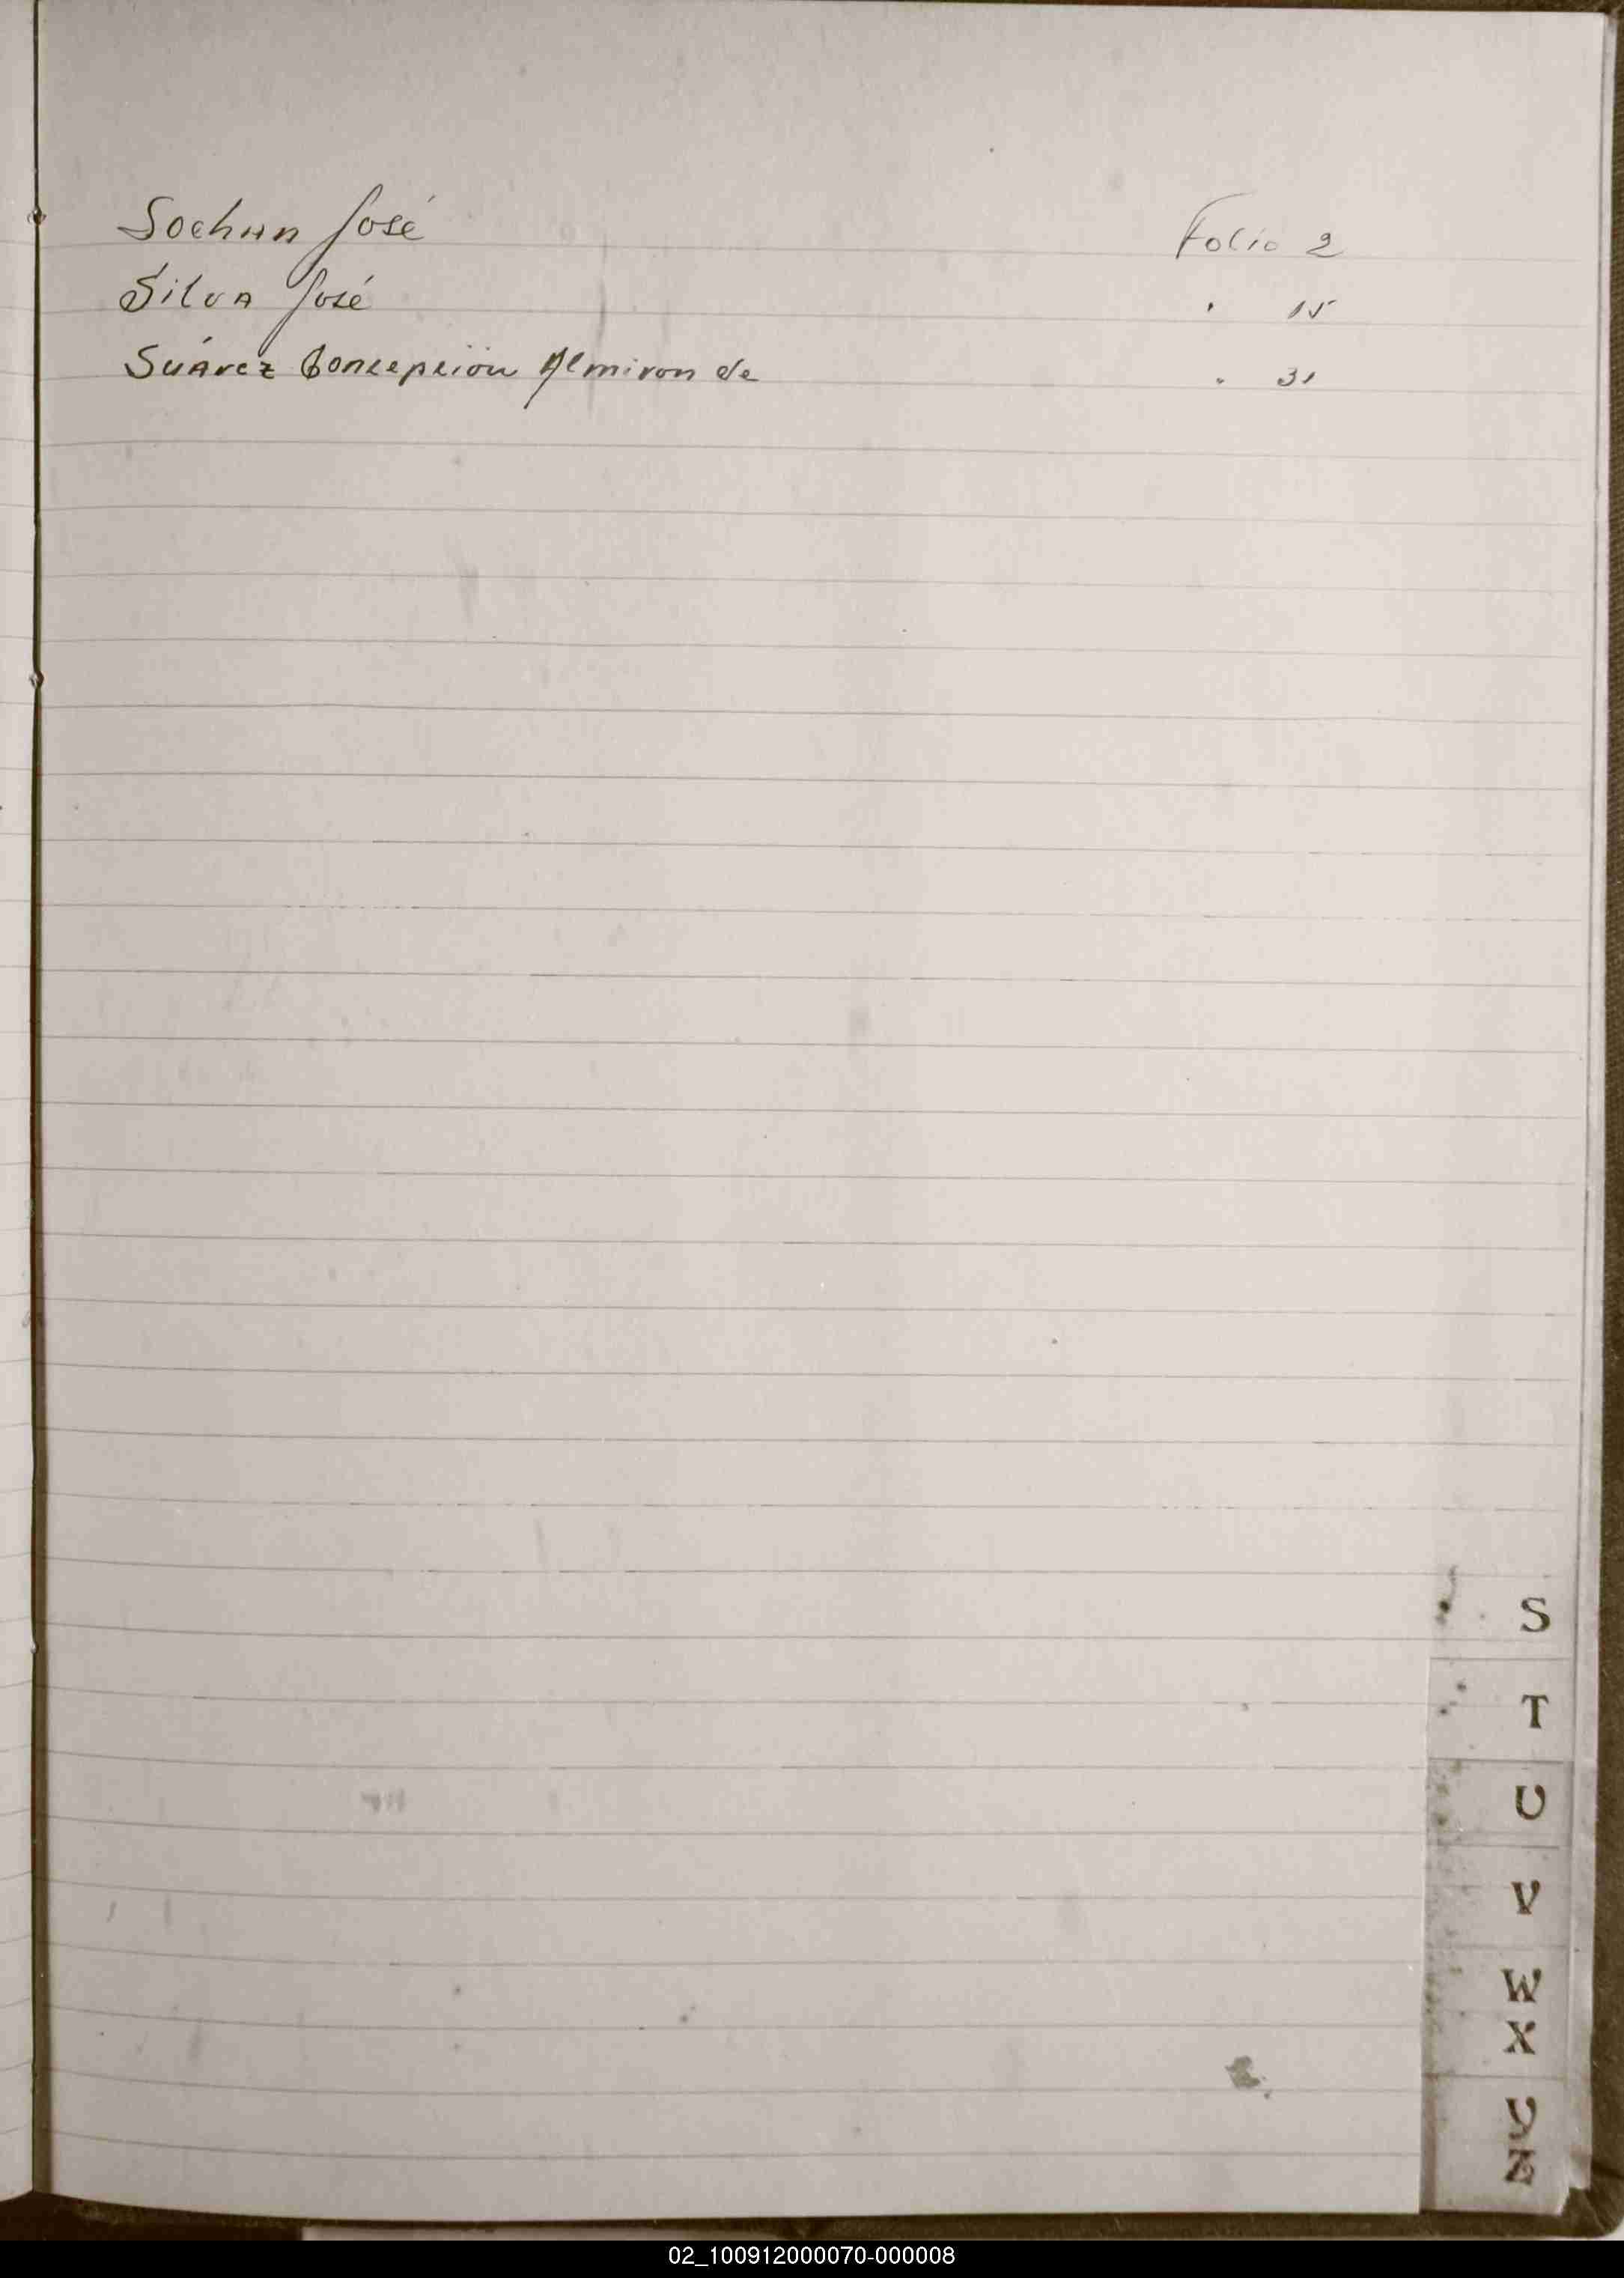 Sochun José Folio 2
Silva José " 15
Suárez Concepción Almiron de " 31
S
T
U
V
W
X
Y
Z
02_100912000070-000008